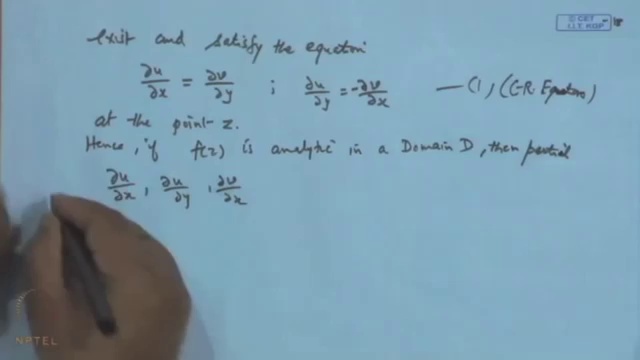 © CET
I.I.T. KGP
exist and satisfy the equation
∂u/∂x = ∂v/∂y ; ∂u/∂y = -∂v/∂x — (1) (C-R. Equations)
at the point z.
Hence, if f(z) is analytic in a Domain D, then partial
∂u/∂x, ∂u/∂y, ∂v/∂x
NPTEL